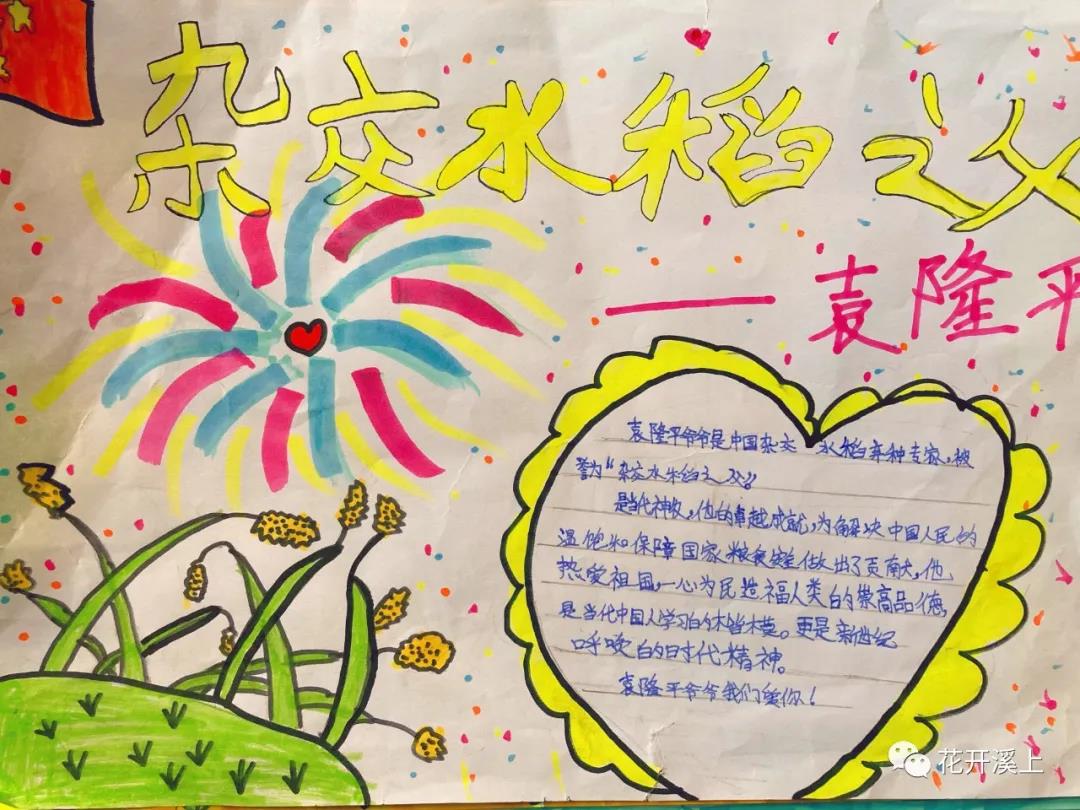 杂交水稻之父
——袁隆平
袁隆平爷爷是中国杂交 水稻育种专家,被
誉为“杂交水稻之父”。
是当代神农,他的卓越成就,为解决中国人民的
温饱和保障国家粮食安全做出了贡献大,他
热爱祖国一心为民造福人类的崇高品德,
是当代中国人学习的楷模。更是新世纪
呼唤的时代精神。
袁隆平爷爷我们爱你!
花开溪上